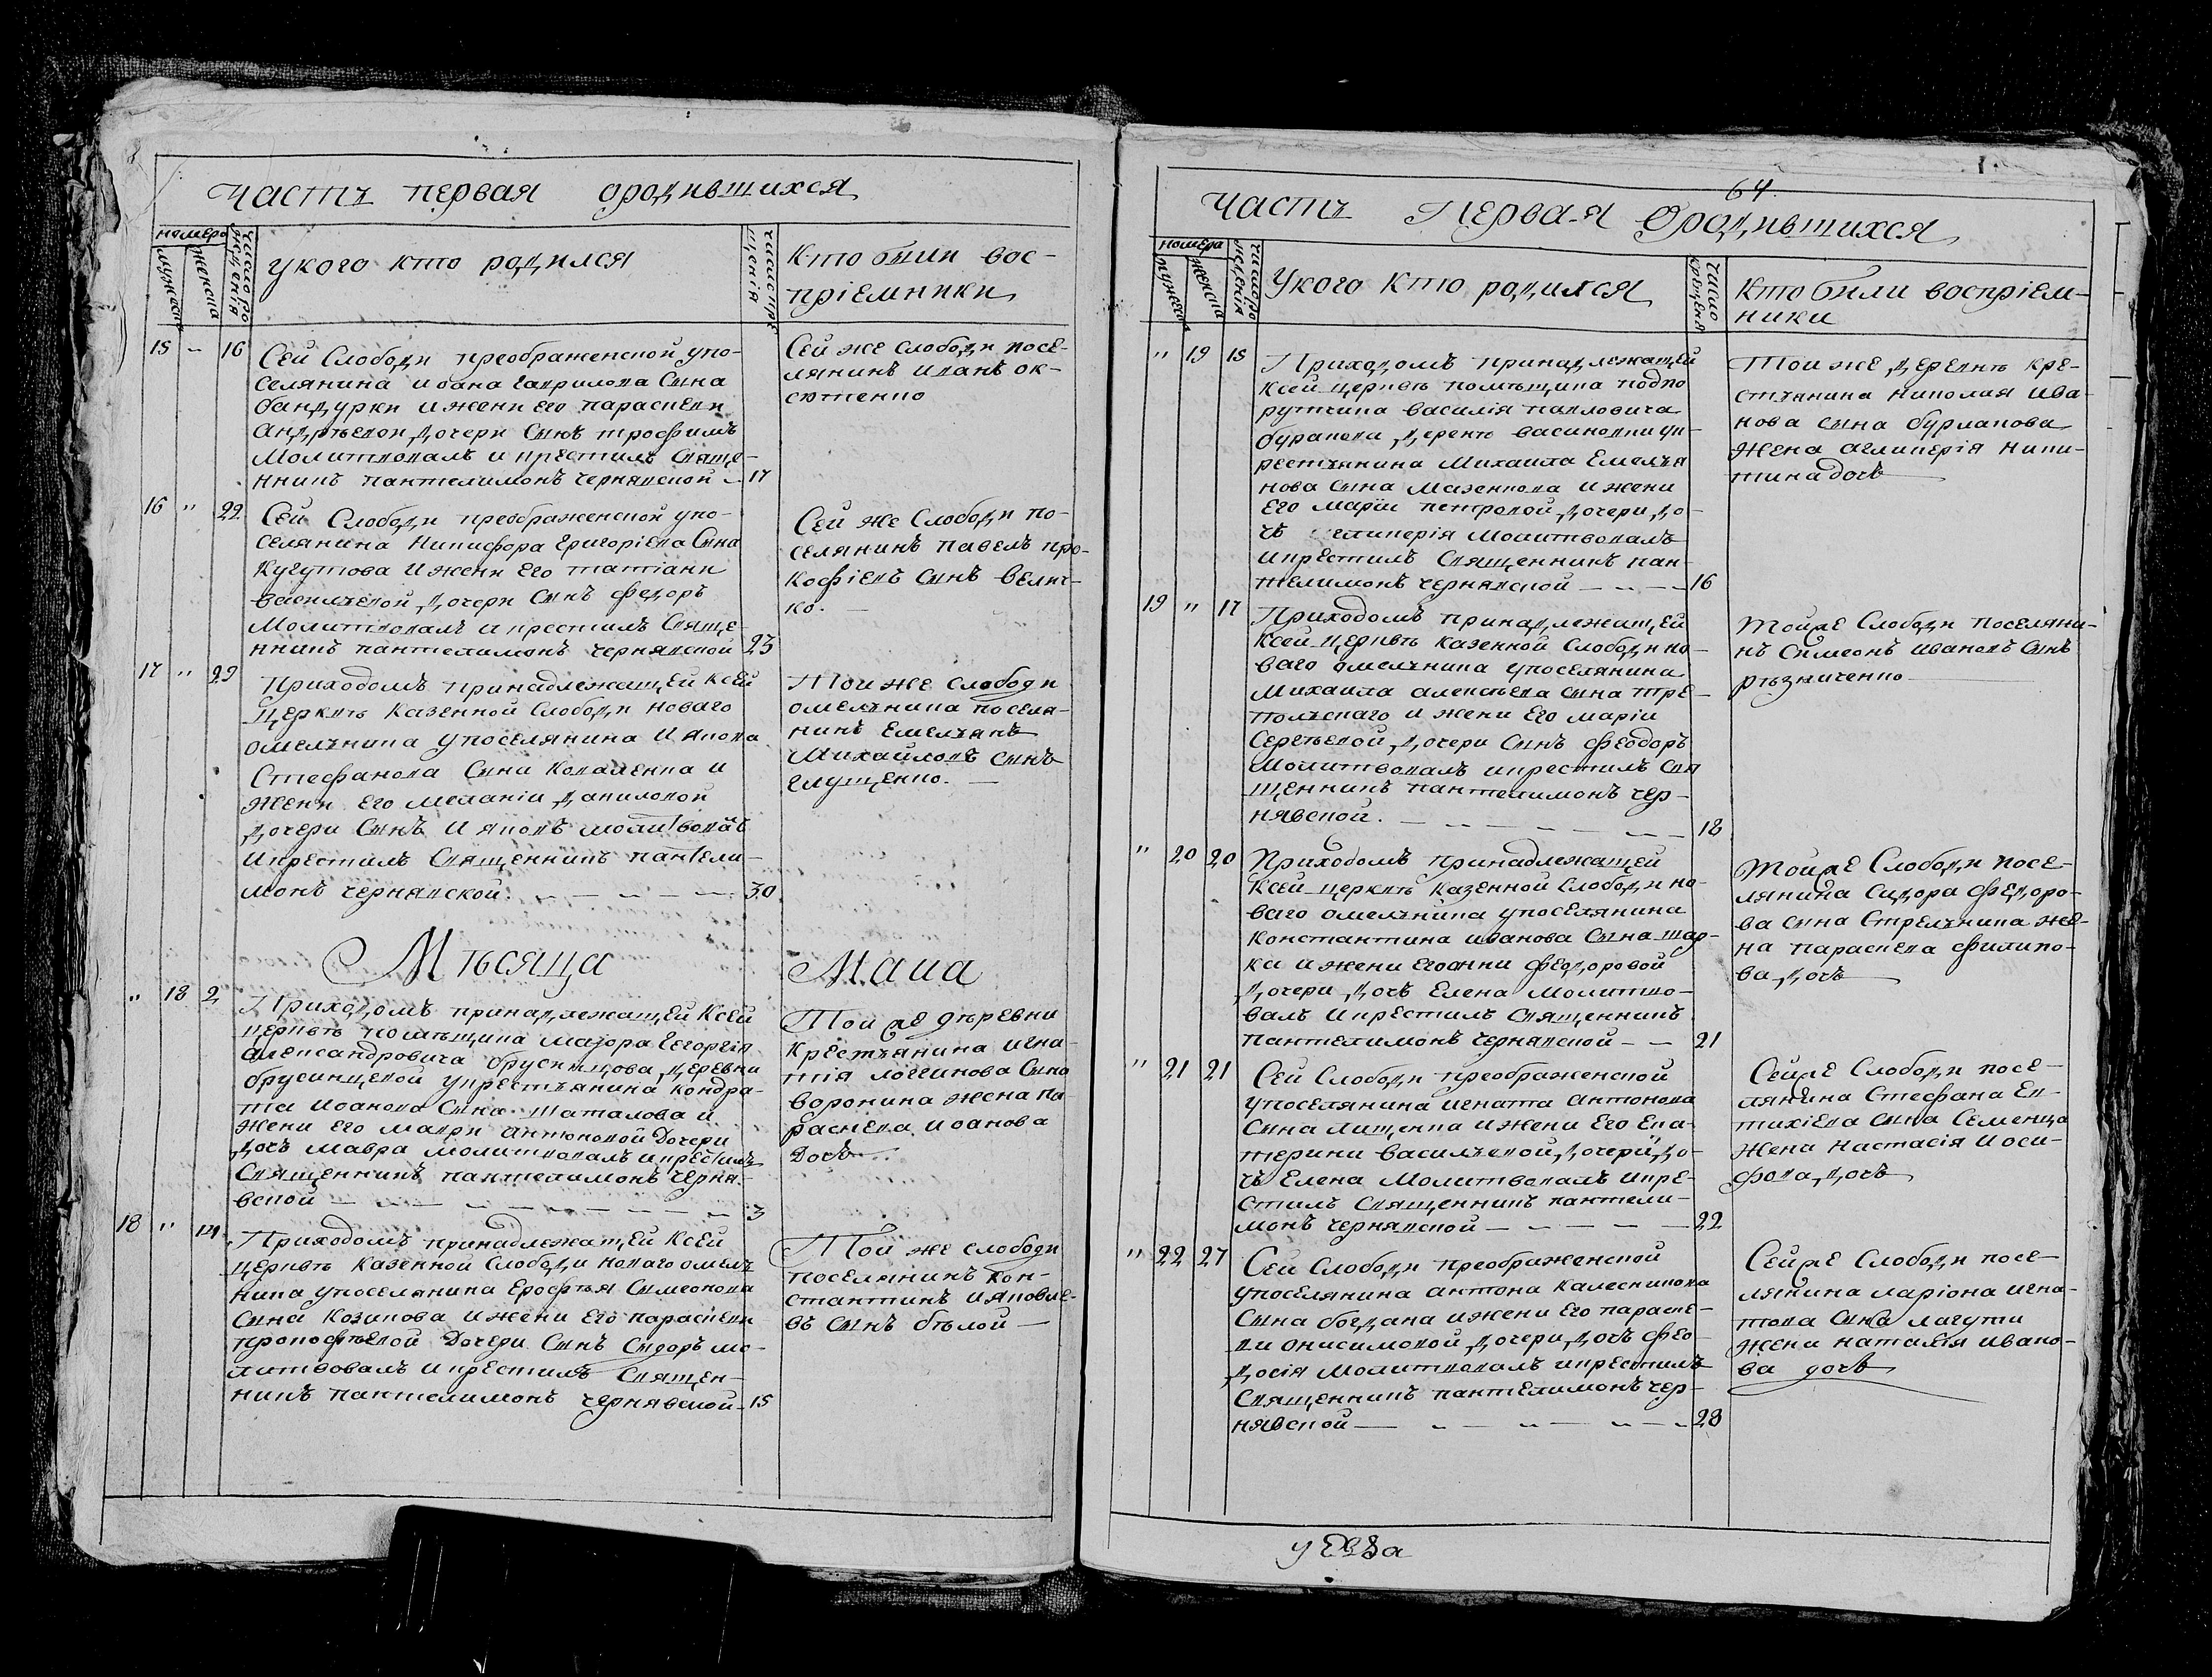 Часть первая ородившихся
номера
мужеска
женска
число рождения
укого кто родился
число крещения
Кто были вос-
пріемники
15 - 16
Сей Слободи преображенской упо-
селянина иоана гаврилова Сына
бандурки и жени его параскеви
андрѣевои дочери Сынъ трофимъ
Молитвовалъ и крестилъ Свяще-
нникъ пантелимонъ чернявской 17
Сей же слободи посе-
лянинъ иванъ ок-
сютенко
16 " 22
Сей Слободи преображенской упо-
селянина Никифора григоріева Сына
Кугутова и жени его татіани
василъевой дочери Сынъ федоръ
Молитвовалъ и крестилъ Свяще-
нникъ пантелимонъ чернявской 23
Сей же Слободи по-
селянинъ павелъ про-
кофіевъ сынъ велич-
ко. -
17 " 29
приходомъ принадлежащей ксей
церквѣ казенной Слободи новаго
омелъника упоселянина Иякова
Стефанова Сына Коваленка и
жени его меланіи даниловой
дочери Сынъ Ияковъ молитвовалъ
икрестилъ Священникъ пантели-
монъ чернявской. 30
Тои же слободи
омелъника поселя-
нинъ Емелъянъ
Михайловъ сынъ
глущенко. -
Мѣсяца Маиа
" 18 2
Приходомъ принадлежащей Ксей
церквѣ помѣщика маіора Гегоргія
александровича брусенцова деревни
брусинцевой укрестъянина кондра-
та иоанова Сына шаталова и
жени его маври антоновой дочери
дочъ мавра молитвовалъ икрестилъ
Священникъ пантелимонъ черня-
вской 3
Той же дѣревни
Крестъянина игна-
тія логгинова Сына
воронина жена па
раскева иоанова
дочъ.
18 " 14
Приходомъ принадлежащей Ксей
церквѣ казенной Слободи новаго омелъ
ника упоселянина Ерофѣя Симеонова
Сына Козикова и жени Его параскеви
прокофъевой Дочери Сынъ Сидоръ мо-
литвовалъ и крестилъ Священ-
никъ пантелимонъ чернявской 15
Той же слободи
поселянинъ кон-
стантинъ ияковле-
въ сынъ бѣлой -
64
часть Перва-я Ородившихся
номера
мужеска
женска
число рождения
Укого кто родился
число крещения
Кто били воспріем-
ники
" 19 15
Приходомъ принадлежащей
ксей церквѣ помѣщика подпо
рутчика василія павловича
буракова деревнѣ васиновки ук-
рестъянина Михаила Емелъя
нова Сына Мазенкова и жени
Его маріи петровой дочери до-
чъ гликерія Молитвовалъ
икрестилъ Священникъ пан-
телимонъ чернявской 16
Тои же деревнѣ кре-
стъянина николая ива-
нова сына бурлакова
жена агликерія ники-
тина дочъ
19 " 17
Приходомъ принадлежащей
ксей церквѣ казенной Слободи но-
ваго омелъника упоселянина
Михаила алексѣева сына тре-
полъскаго и жени Его маріи
Сергѣевой дочери Сынъ феодоръ
Молитвовалъ икрестилъ Свя
щенникъ пантелимонъ чер-
нявской. 18
тойже Слободи поселяни-
нъ Симеонъ ивановъ Сынъ
рѣзниченко
" 20 20
Приходомъ принадлежащей
ксей церквѣ казенной Слободи но-
ваго омелъника упоселянина
константина иванова Сына шар-
ка и жени Егоанни феодоровой
дочери дочъ Елена Молитво-
валъ икрестилъ Священникъ
пантелимонъ чернявской 21
тойже Слободи посе-
лянина сидора федоро-
ва сина Стрелъника же-
на параскева филипо-
ва дочъ
" 21 21
Сей Слободи преображенской
упоселянина игната антонова
Сына лищенка и жени Его Ека-
терини василъевой дочери до-
чъ Елена Молитвовалъ икре-
стилъ Священникъ пантели-
монъ чернявской 22
Сейже Слободи посе-
лянина Стефана Ев-
тихіева Сына Семенца
жена настасія иоси-
фова дочъ
" 22 27
Сей Слободи преображенской
упоселянина антона Калесникова
Сына богдана ижени Его параске-
ви онисимовой дочери дочъ фео-
досія молитвовалъ икрестилъ
Священникъ пантелимонъ чер-
нявской 28
Сейже Слободи посе-
лянина ларіона игна-
това Сына лагути
жена наталія ивано-
ва дочъ